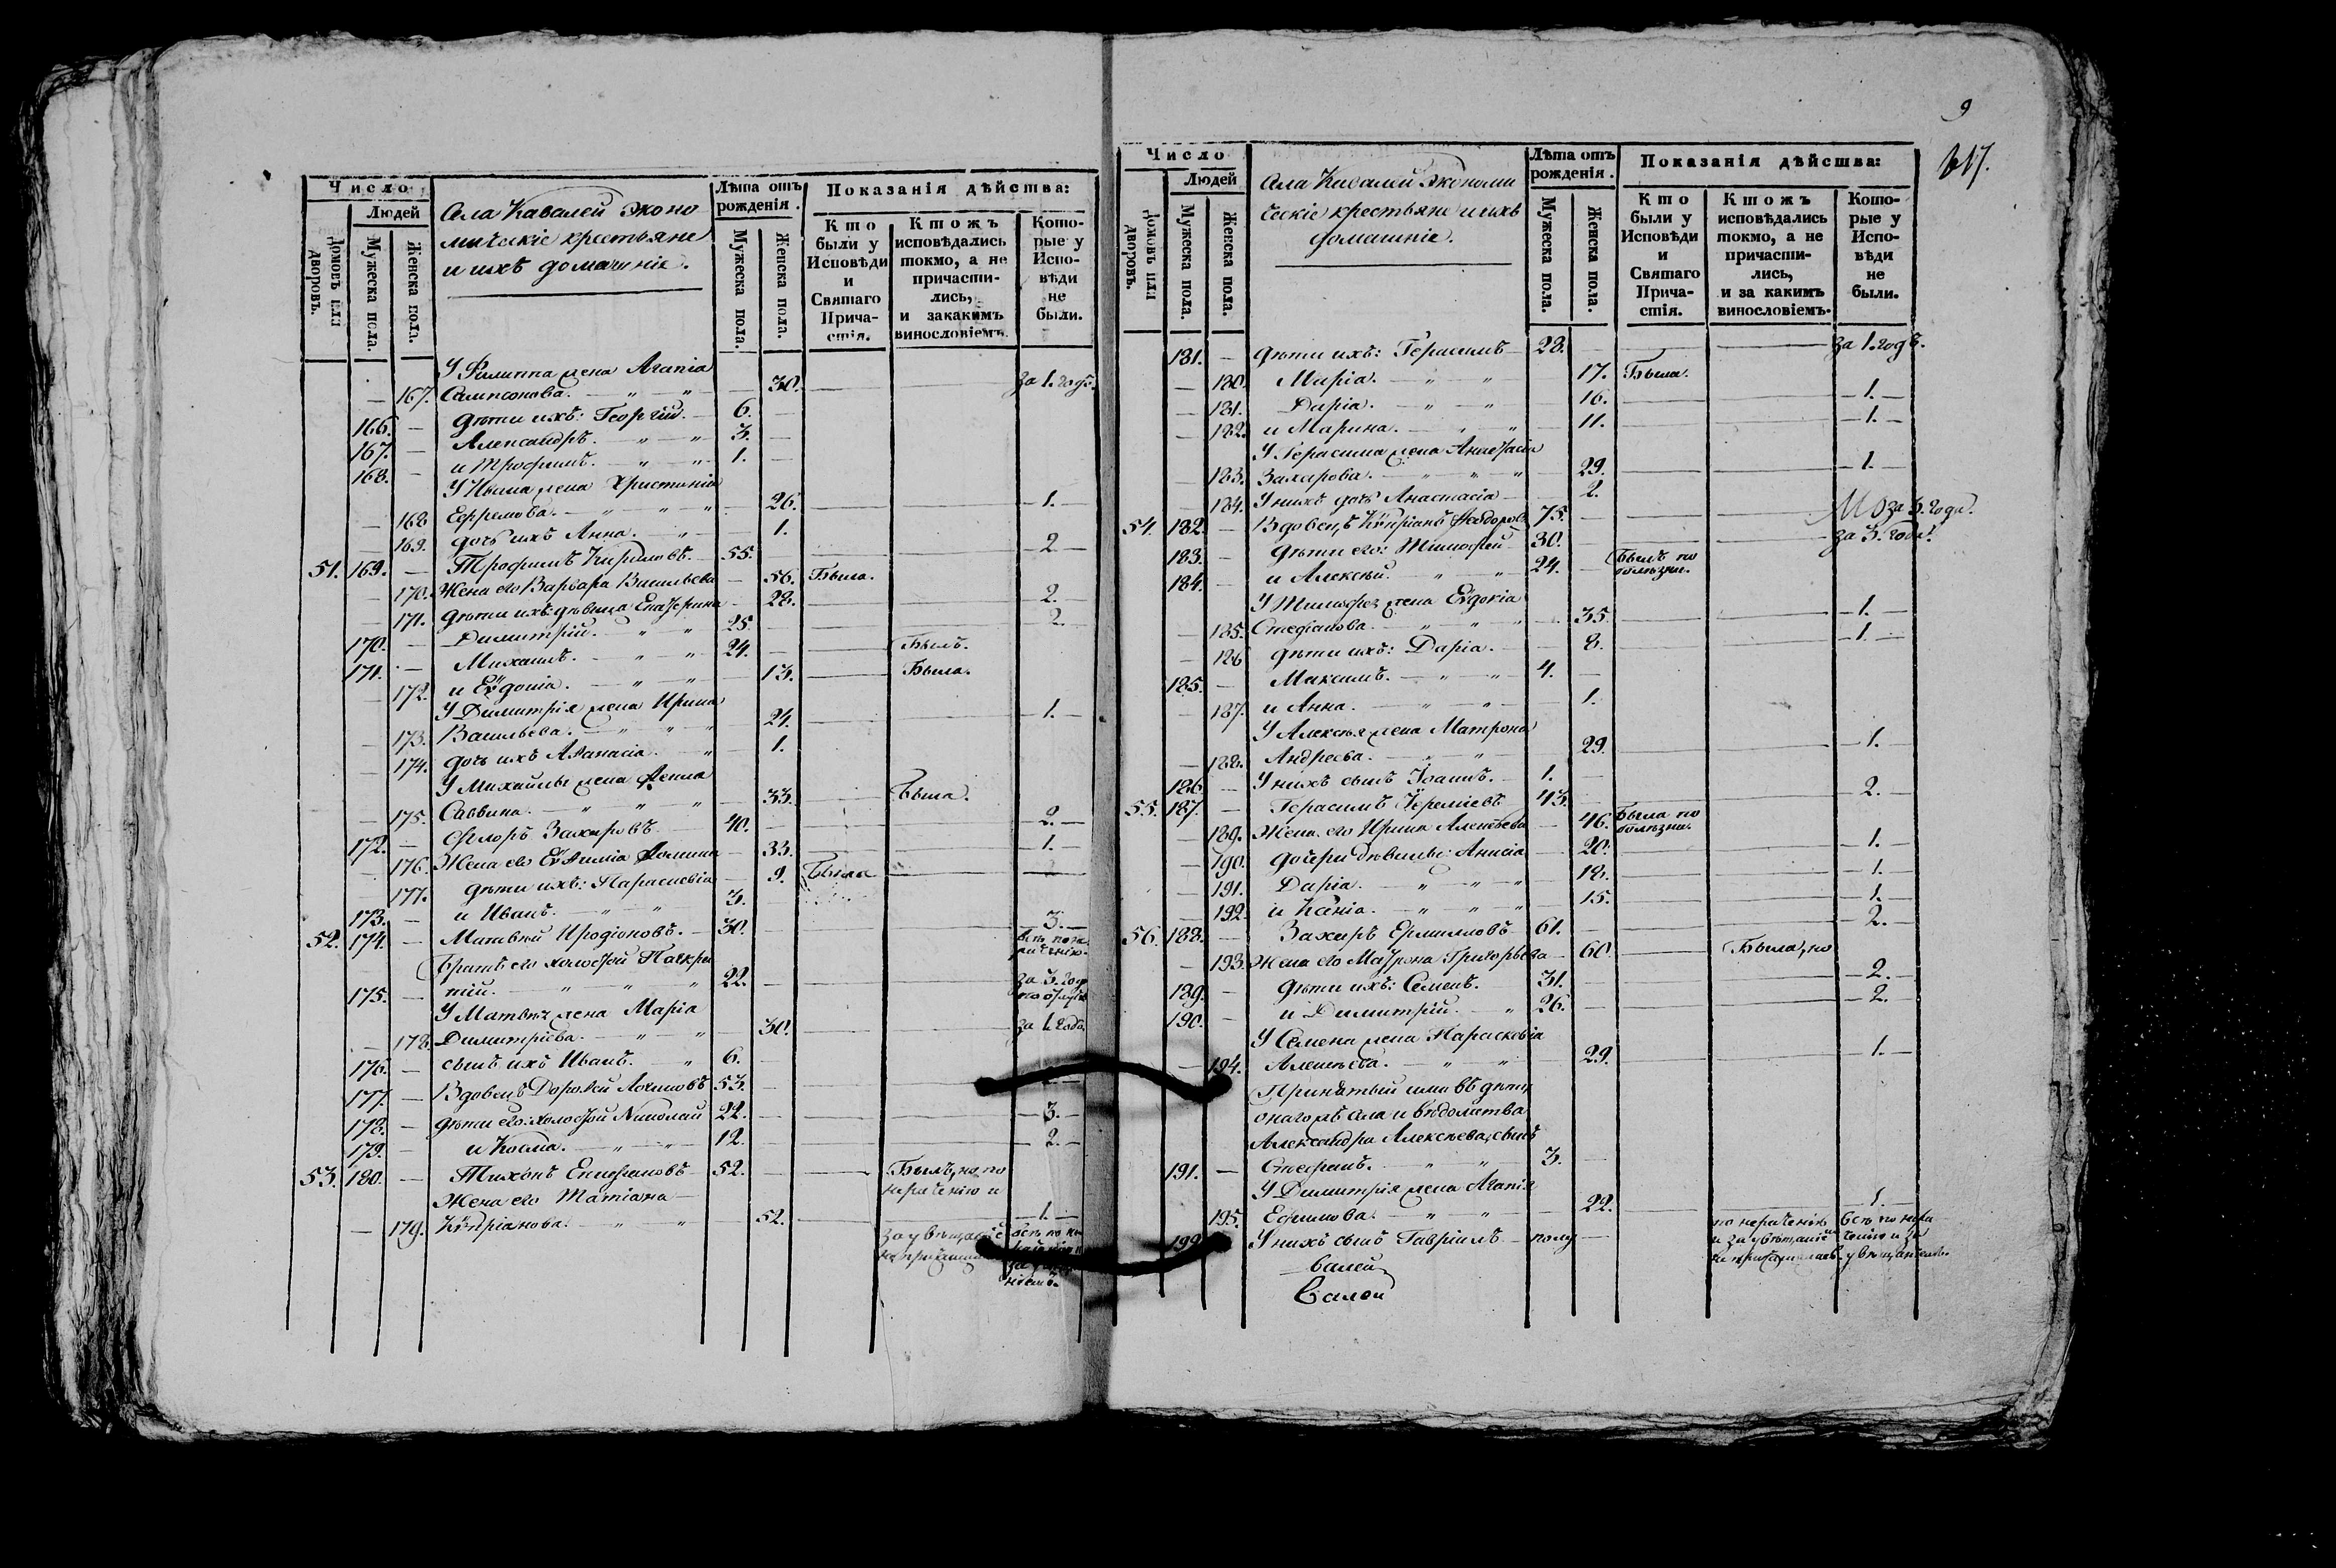 Число
Людей
Домовъ или дворовъ.
Мужеска пола.
Женска пола.
Села Кавалей Эконо
мическіе крестьяне
и ихъ домашніе.
Лѣта отъ рожденія.
Мужеска пола.
Женска пола.
Показанія дѣйства:
Кто были у Исповѣди и Святаго Причастія.
Ктожъ исповѣдались токмо, а не причастились, и закакимъ винословіемъ.
Которые у Исповѣди не были.
У Филиппа жена Агапіа
— 167. Сампсонова. — 30. — за 1. годъ.
166. — Дѣти ихъ: Георгій. 6. —
167. — Александръ. 3. —
168. — и Трофимъ. 1. —
У Ивана жена Христиніа
— 168 Ефремова. — 26. — 1. —
— 169. дочь ихъ Анна. 1.
51. 169. — Трофимъ Кириловъ. 55. — 2
— 170. Жена его Варвара Васильева — 56. Была.
— 171. Дѣти ихъ: дѣвица Екатерина 28. — 2. —
170. — Димитрій. 25. — 2. —
171. — Михаилъ. 24. — Былъ.
— 172. и Евдокіа. — 13. — Была.
У Димитрія жена Ирина
— 173. Васильева. 24. — 1. —
— 174. дочь ихъ Аѳанасіа. — 1.
У Михайлы жена Ѳекла
— 175. Саввина. — 33. Была.
172. — Ѳедоръ Захаровъ. 40. — 2. —
— 176. Жена его Евѳиміа Ѳомина — 33. — 1. —
— 177. дѣти ихъ: Параскевіа — 9. Была
173. — и Иванъ. 3. —
52. 174. — Матвѣй Иродіоновъ. 30. — 3. —
Братъ его холостой Панкра
175. — тій. 22. — за 3. год
У Матвѣя жена Маріа
— 178. Димитріева. — 30. за 1. годъ.
176. — сынъ ихъ Иванъ. 6. —
177. — Вдовецъ Дороѳей Логиновъ 53. —
178. — дѣти его: холостой Николай 22. — 3. —
179. — и Косма. 12. — 2. —
53. 180. — Тихонъ Епифановъ 52. — Былъ, но по
Жена его Татіана — нераченію и
— 179. Кипріанова. 52. — 1. —
9
Число
Людей
Домовъ или дворовъ.
Мужеска пола.
Женска пола.
Села Кавалей Экономи
ческіе крестьяне и ихъ
домашніе.
Лѣта отъ рожденія.
Мужеска пола.
Женска пола.
Показанія дѣйства:
Кто были у Исповѣди и Святаго Причастія.
Ктожъ исповѣдались токмо, а не причастились, и за какимъ винословіемъ.
Которые у Исповѣди не были.
181. — Дѣти ихъ: Герасимъ 28. — за 1. годъ.
— 180. Маріа. 17. Была.
— 181. Даріа. 16. — 1. —
— 182. и Марина. 11. — 1. —
У Герасима жена Анастасіа
— 183. Захарова. — 29. — 1. —
— 184. У нихъ дочь Анастасіа — 2.
54. 182. — Вдовецъ Кипріанъ Ѳедоровъ 75. — за 3. года.
183. — Дѣти его: Тимофей 30. — за 3. года.
184. — и Алексѣй. 24. — Былъ по болѣзни.
У Тимофея жена Евдокіа
— 185. Стефанова. — 35. — 1. —
— 186 дѣти ихъ: Даріа. — 8. — 1. —
185. — Максимъ. 4. —
— 187. и Анна. — 1.
У Алексѣя жена Матрона
— 188. Андреева. — 29. — 1. —
186. — У нихъ сынъ Іоаннъ. 1. —
55. 187. — Герасимъ Іереміевъ 43. — 2. —
— 189. Жена его Ирина Алексѣева — 46. Была по болѣзни.
— 190. Дочери дѣвицы: Анисіа 20. — 1. —
— 191. Даріа. 18. — 1. —
— 192. и Ксеніа. 15. — 1. —
56. 188. — Захаръ Ермиловъ 61. — 2. —
— 193. Жена его Матрона Григорьева — 60. — Была, но
189. — дѣти ихъ: Семенъ. 31. — 2. —
190. — и Димитрій. 26. — 2. —
У Семена жена Параскевіа
— 194. Алексѣева. — 29. — 1. —
Принятый ими въ дѣти
онагожъ села и вѣдомства
Александра Алексѣева, сынъ
191. — Стефанъ. 3. —
У Димитрія жена Агапіа
— 195. Ефимова. — 22. — 1. —
192 У нихъ сынъ Гавріилъ — полу —
по нераченію
валей